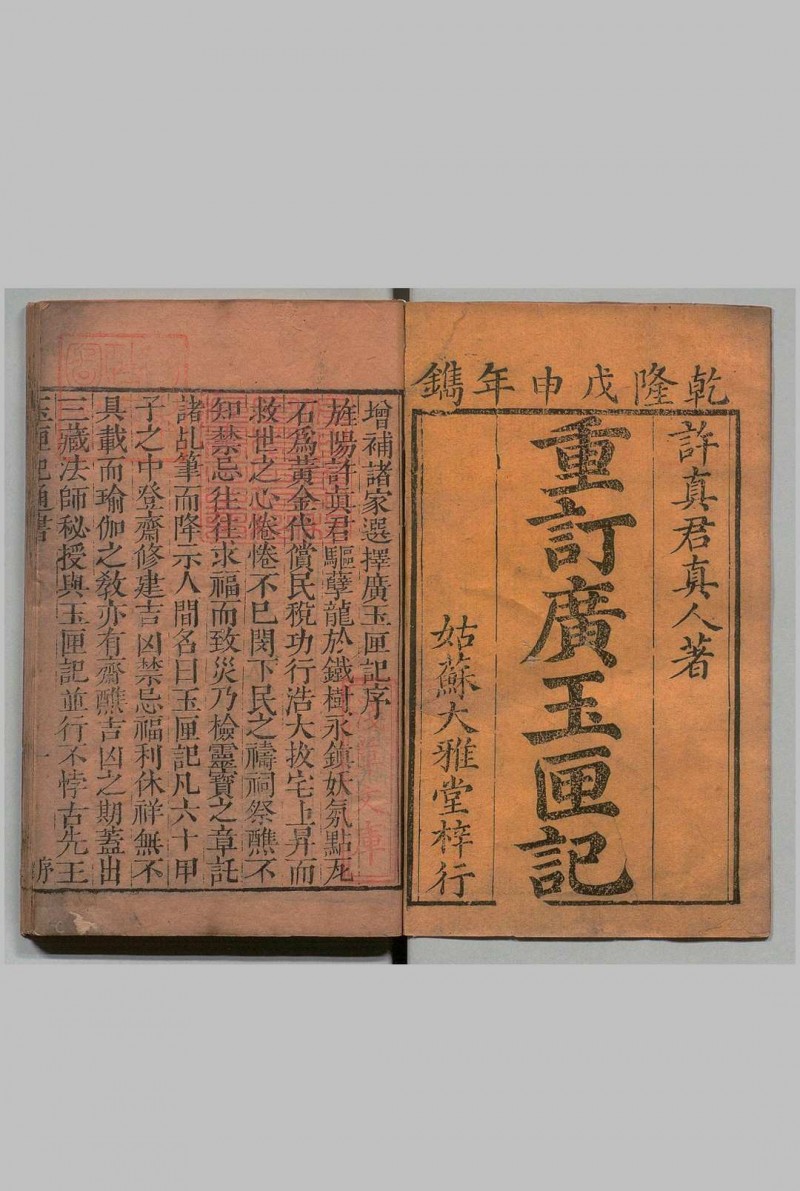 乾隆戊申年鐫
許真君真人著
重訂廣玉匣記
姑蘇大雅堂梓行
增補諸家選擇廣玉匣記序
旌陽許真君驅孽龍於鐵樹永鎮妖氛點瓦
石爲黃金代償民稅功行浩大拔宅上昇而
救世之心惓惓不已閔下民之禱祠祭醮不
知禁忌往往求福而致災乃檢靈寶之章託
諸乩筆而降示人間名曰玉匣記凡六十甲
子之中登齋修建吉凶禁忌福利休祥無不
具載而瑜伽之敎亦有齋醮吉凶之期蓋出
三藏法師秘授與玉匣記並行不悖古先王
玉匣記通書 一 序